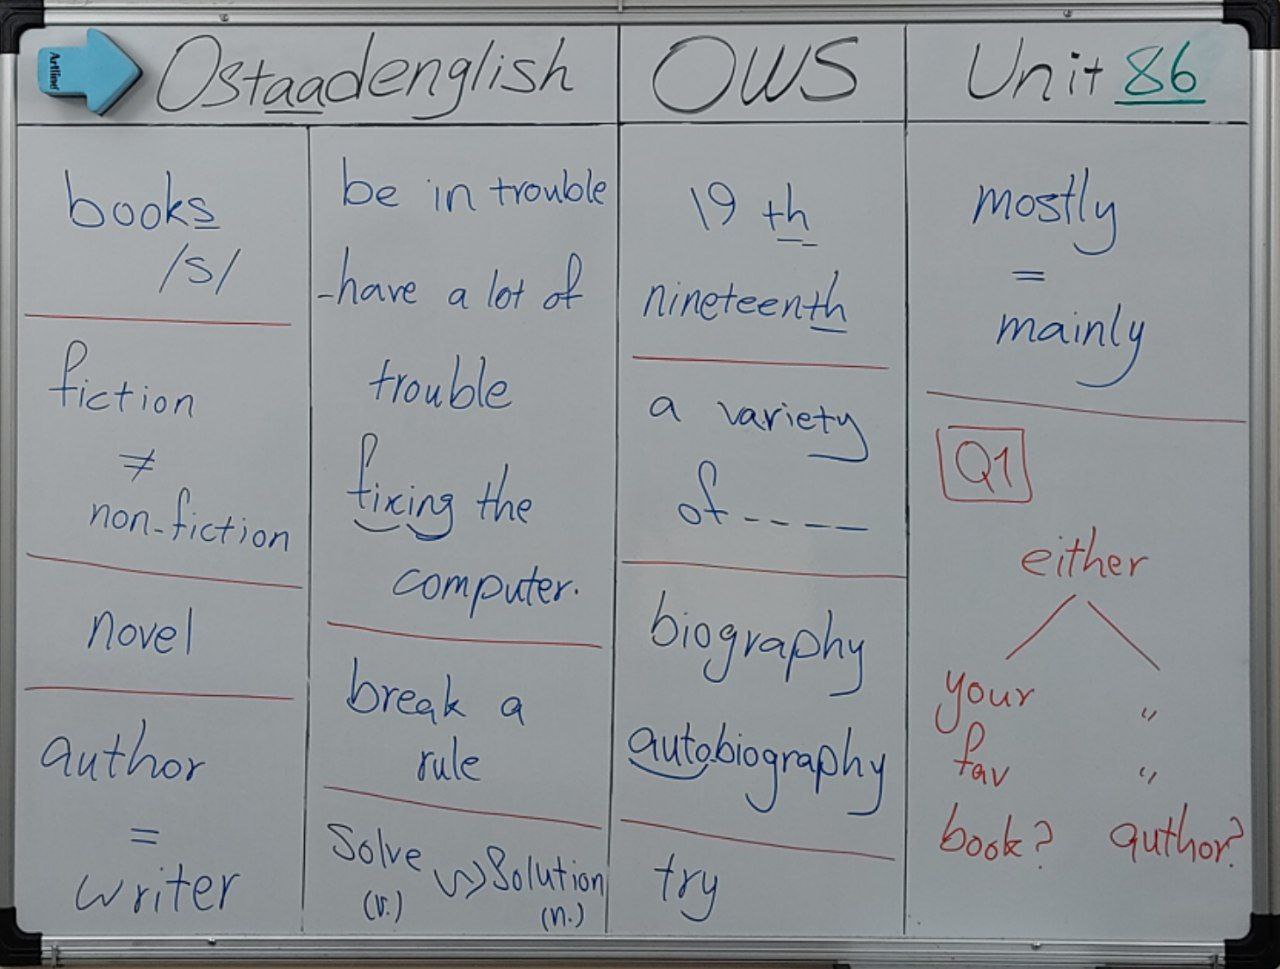 Artline
Ostaadenglish
OWS
Unit 86
books
/s/
fiction
≠
non-fiction
novel
author
=
writer
be in trouble
-have a lot of
trouble
fixing the
computer.
break a
rule
Solve ~> Solution
(v.) (n.)
19 th
nineteenth
a variety
of ----
biography
autobiography
try
mostly
=
mainly
Q1
either
your "
fav "
book? author?